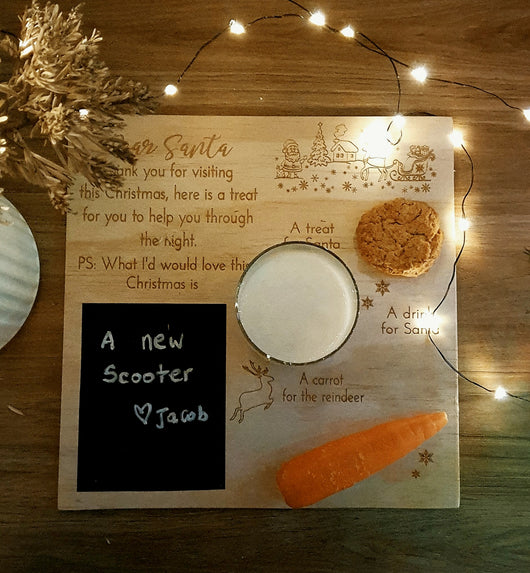 Dear Santa
Thank you for visiting
this Christmas, here is a treat
for you to help you through
the night.
PS: What I'd would love this
Christmas is
A new
Scooter
♡ Jacob
A treat
for Santa
A drink
for Santa
A carrot
for the reindeer